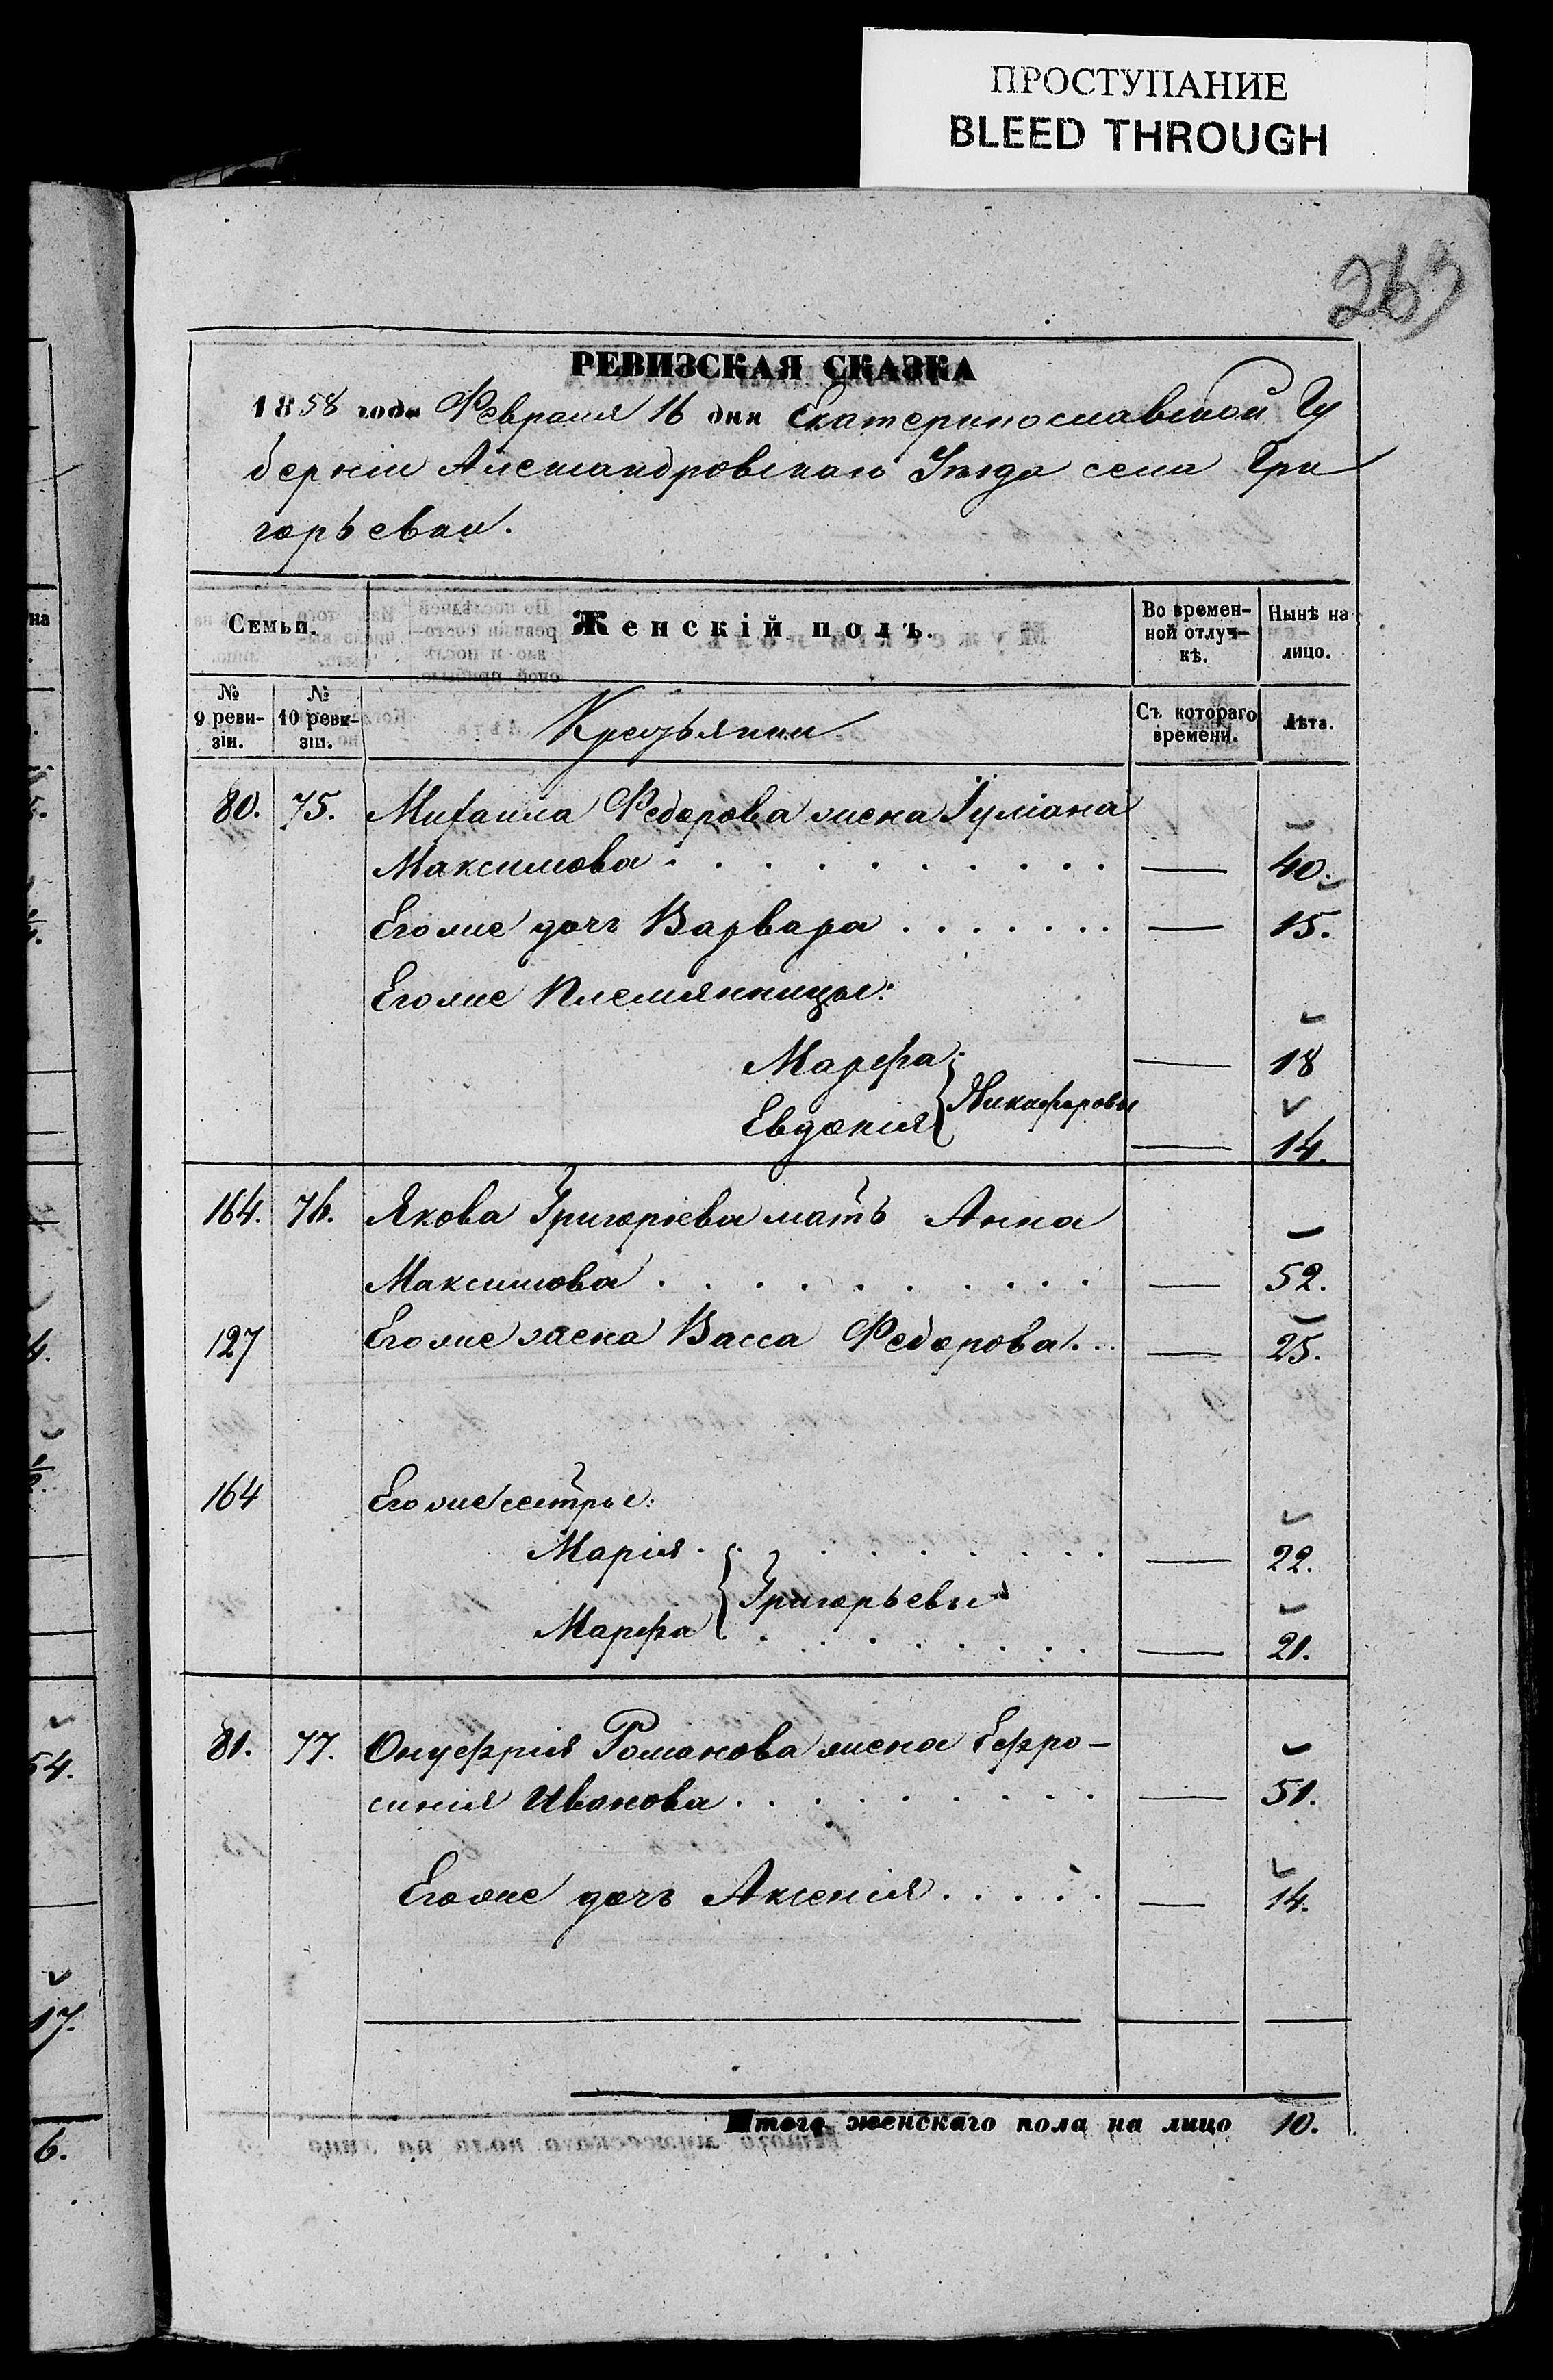 ПРОСТУПАНИЕ
BLEED THROUGH
263
РЕВИЗСКАЯ СКАЗКА
1858 года Февраля 16 дня Екатеринославской Гу
берніи Александровскаго Уѣзда села Гри
горьевки.
Семьи. Женскій полъ. Во времен-
ной отлуч-
кѣ. Нынѣ на
лицо.
№
9 реви-
зіи. №
10 реви-
зіи. Крестьянки Съ котораго
времени. Лѣта.
80. 75. Михаила Федорова жена Іуліана
Максимова — 40.
Егоже дочь Варвара — 15.
Егоже Племянницы:
Марфа — 18
Никифоровы
Евдокія — 14.
164. 76. Якова Григорьева мать Анна
Максимова — 52.
127 Егоже жена Васса Федорова — 25.
164 Егоже сестры:
Марія — 22.
Григорьевы
Марфа — 21.
81. 77. Онуфрія Романова жена Ефро-
синія Иванова — 51.
Егоже дочь Аксенія — 14.
Итого женскаго пола на лицо 10.
на
54.
17.
6.